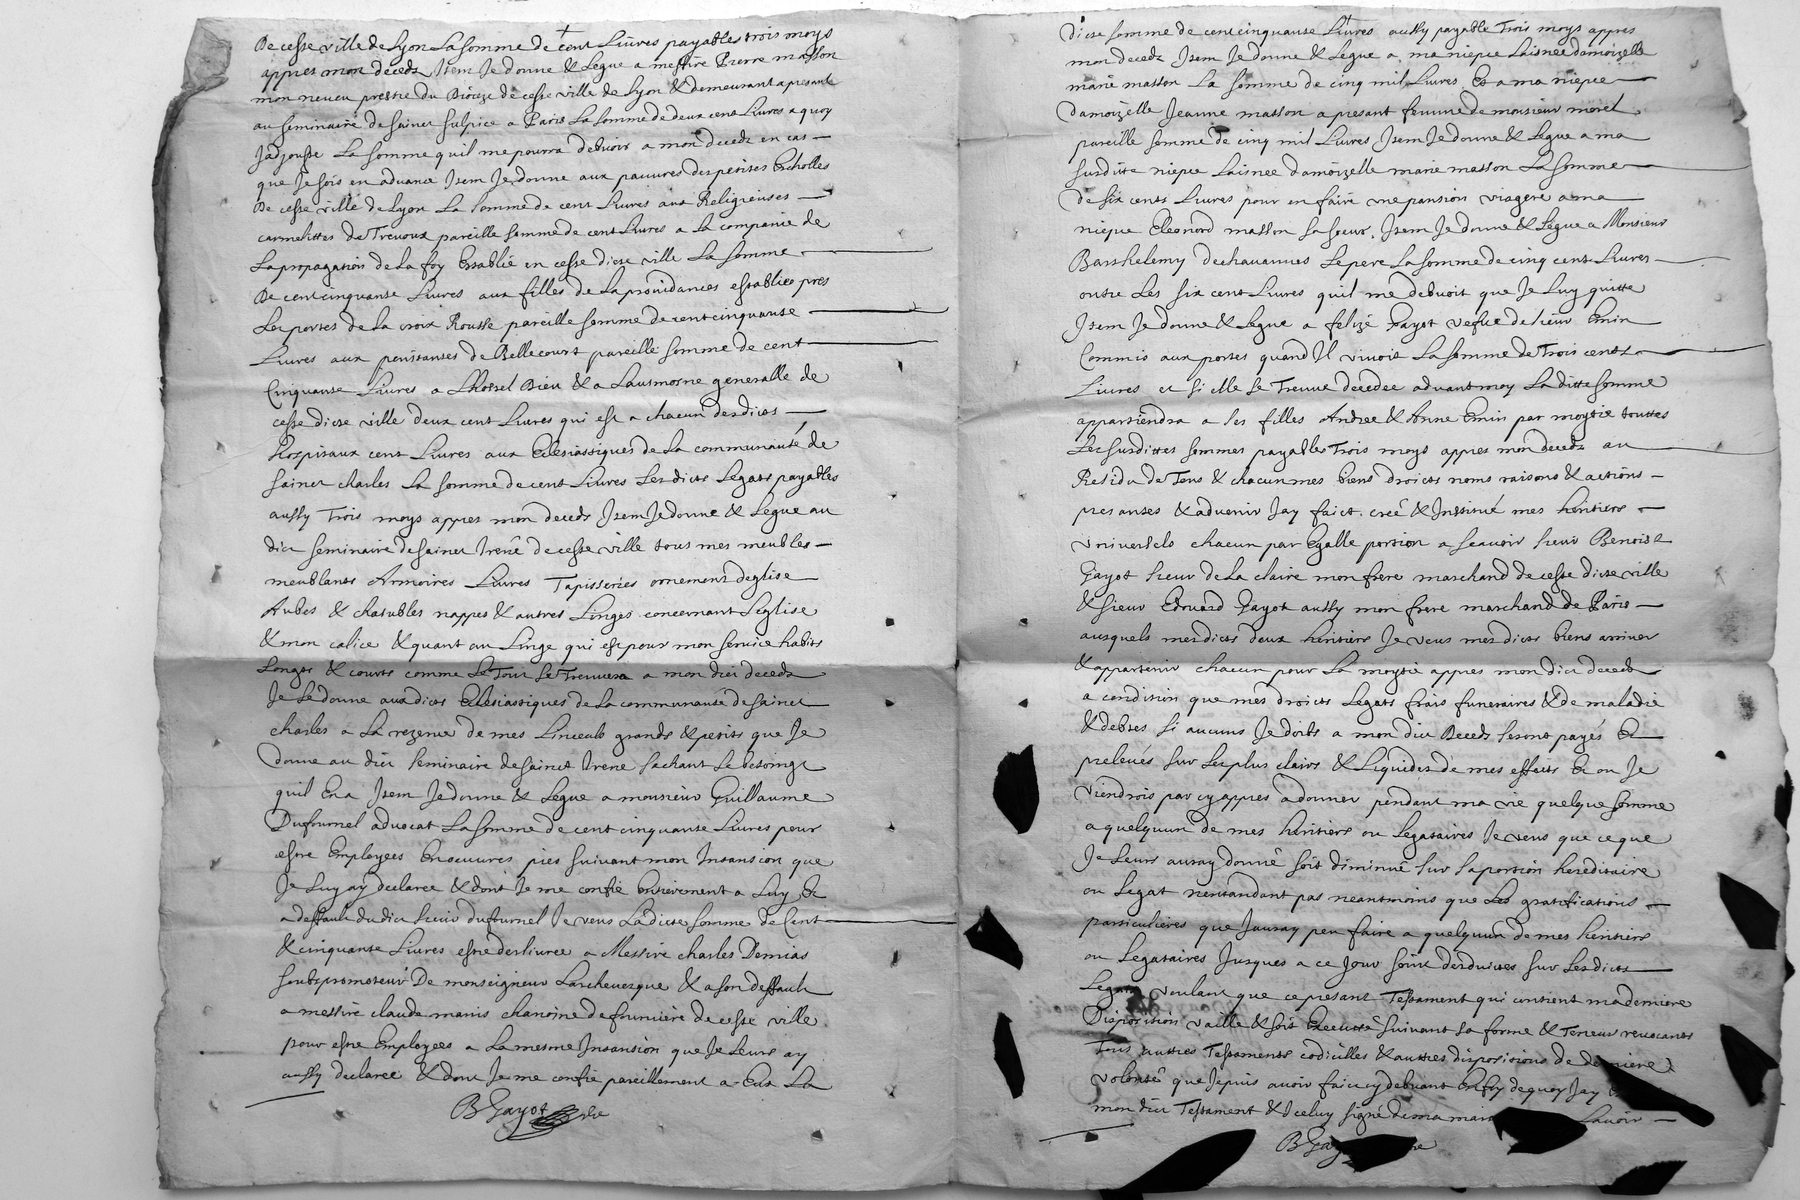 De cesse ville de Lyon La somme de cent Livres payables trois moys
appres mon decedz Item Je donne & Legue a messire Pierre masson
mon neveu prestre du Dioceze de cesse ville de Lyon & demeurant a presant
au seminaire de sainct sulpice a Paris La somme de deux cens Livres a quoy
Jadjouste La somme quil me pourra debvoir a mon decedz en cas
que Je sois en advance Item Je donne aux pauvres des petites Escholles
De cesse ville de Lyon La somme de cent Livres aux Religieuses
carmelittes de Trevoux pareille somme de cent Livres a La companie de
La propagation de La foy Establie en cesse dicte ville La somme
De cent cinquante Livres aux filles de La providances establies pres
Les portes de La croix Rousse pareille somme de cent cinquante
Livres aux penitantes de Bellecourt pareille somme de cent
Cinquante Livres a Lhostel Dieu & a Laumosne generalle de
cesse dicte ville deux cent Livres qui est a chacun desdicts
Hospitaux cent Livres aux Eclesiastiques de La communauté de
sainct charles La somme de cent Livres Lesdicts Legats payables
aussy Trois moys appres mon decedz Item Je donne & Legue au
dict seminaire de sainct Irene de cesse ville tous mes meubles
meublants Armoires Livres Tapisseries ornement deglise
Aubes & chasubles nappes & autres Linges concernant Leglise
& mon calice & quant au Linge qui est pour mon service habits
Longs & courts comme Le Tout se Treuvera a mon dict decedz
Je Le donne auxdicts Eclesiastiques de La communauté de sainct
charles a La rezerve de mes Linceuls grands & petits que Je
donne au dict seminaire de sainct Irene sachant Le besoing
quil En a Item Je donne & Legue a monsieur Guillaume
Dufournel advocat La somme de cent cinquante Livres pour
estre Employees En oeuvres pies suivant mon Intansion que
Je Luy ay declaree & dont Je me confie Entierement a Luy Et
a deffault dudict sieur dufournel Je veus Ladicte somme de Cent
& cinquante Livres estre deslivree a Messire charles Demias
soubspromoteur De monseigneur Larchevesque & a son deffault
a messire claude manis chanoine de fourviere de cesse ville
pour estre Employees a La mesme Intansion que Je Leurs ay
aussy declaree & dont Je me confie pareillement a Eux La
B Gayot
dicte somme de cent cinquante Livres aussy payable Trois moys appres
mon decedz Item Je donne & Legue a ma niepce Laisnee damoizelle
marie masson La somme de cinq mil Livres Et a ma niepce
damoizelle Jeanne masson a presant femme de monsieur morel
pareille somme de cinq mil Livres Item Je donne & Legue a ma
susditte niepce Laisnee damoizelle marie masson La somme
de six cents Livres pour en faire une pansion viagere a ma
niepce Eleonord masson sa soeur. Item Je donne & Legue a Monsieur
Barthelemy dechavannes Le pere La somme de cinq cent Livres
outre Les six cent Livres quil me debvoit que Je Luy quitte
Item Je donne & Legue a felize Gayot vefve de sieur Emin
Commis aux portes quand Il vivoit La somme de Trois cents
Livres et si elle se Treuve decedee advant moy La ditte somme
appartiendra a ses filles Andree & Anne Emin par moytie touttes
Les susdittes sommes payables Trois moys appres mon decedz au
Residu de Tous & chacun mes biens droicts noms raisons & actions
presantes & advenir Jay faict creé & Institué mes heritiers
universels chacun par Egalle portion a scavoir sieur Benoist
Gayot sieur de La claire mon frere marchand de cesse dicte ville
& sieur Edouard Gayot aussy mon frere marchand de Paris
ausquels mesdicts deux heritiers Je veus mesdicts biens arriver
& appartenir chacun pour La moytie appres mon dict decedz
a condition que mes droicts Legats frais funeraires & de maladie
& debtes si aucuns Je doibs a mon dict Decedz seront payés Et
prelevés sur Les plus clairs & Liquides de mes effaits Et ou Je
viendrois par cy appres a donner pendant ma vie quelque somme
a quelquun de mes heritiers ou Legataires Je veus que ce que
Je Leurs auray donné soit diminué sur sa portion hereditaire
ou Legat nentandant pas neantmoins que Les gratifications
particulieres que Jauray peu faire a quelquun de mes heritiers
ou Legataires Jusques a ce Jour soint desduites sur Lesdicts
Legats voulant que ce presant Testament qui contient ma derniere
Disposition vaille & soit Executé suivant sa forme & Teneur revocants
Tous autres Testaments codicilles & autres dispositions de derniere
volonté que Je puis avoir faict cy debvant En foy de quoy Jay
mon dict Testament & Iceluy signé de ma main Lavoir
B Gayot